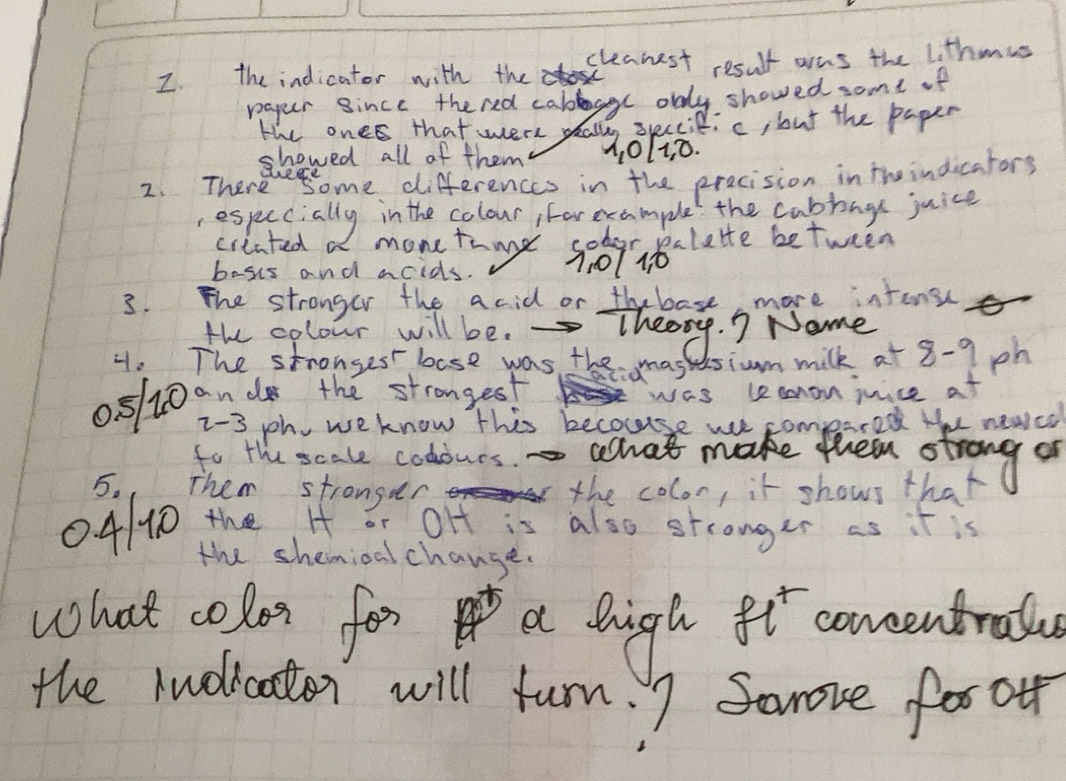 1. the indicator with the cleanest result was the Lithmus
paper since the red cabbage only showed some of
the ones that were really specific, but the paper
showed all of them ✓ 1,0/1,0.
2. There were some differences in the precision in the indicators
, especcially in the colour, for example: the cabbage juice
created a more tame color palette between
basis and acids. ✓ 1,0/1,0
3. The stronger the acid or the base, more intense
the colour will be. → Theory.? Name
4. The strongest base was the magnesium milk at 8-9 ph
0.5/1.0 and the strongest acid was lemon juice at
2-3 ph, we know this because we compared the
to the scale colours. → What make them strong or
5. Them stronger the color, it shows that
0.4/1.0 the H or OH is also stronger as it is
the shemical change.
What color for a high H+ concentratio
the indicator will turn.? Same for OH